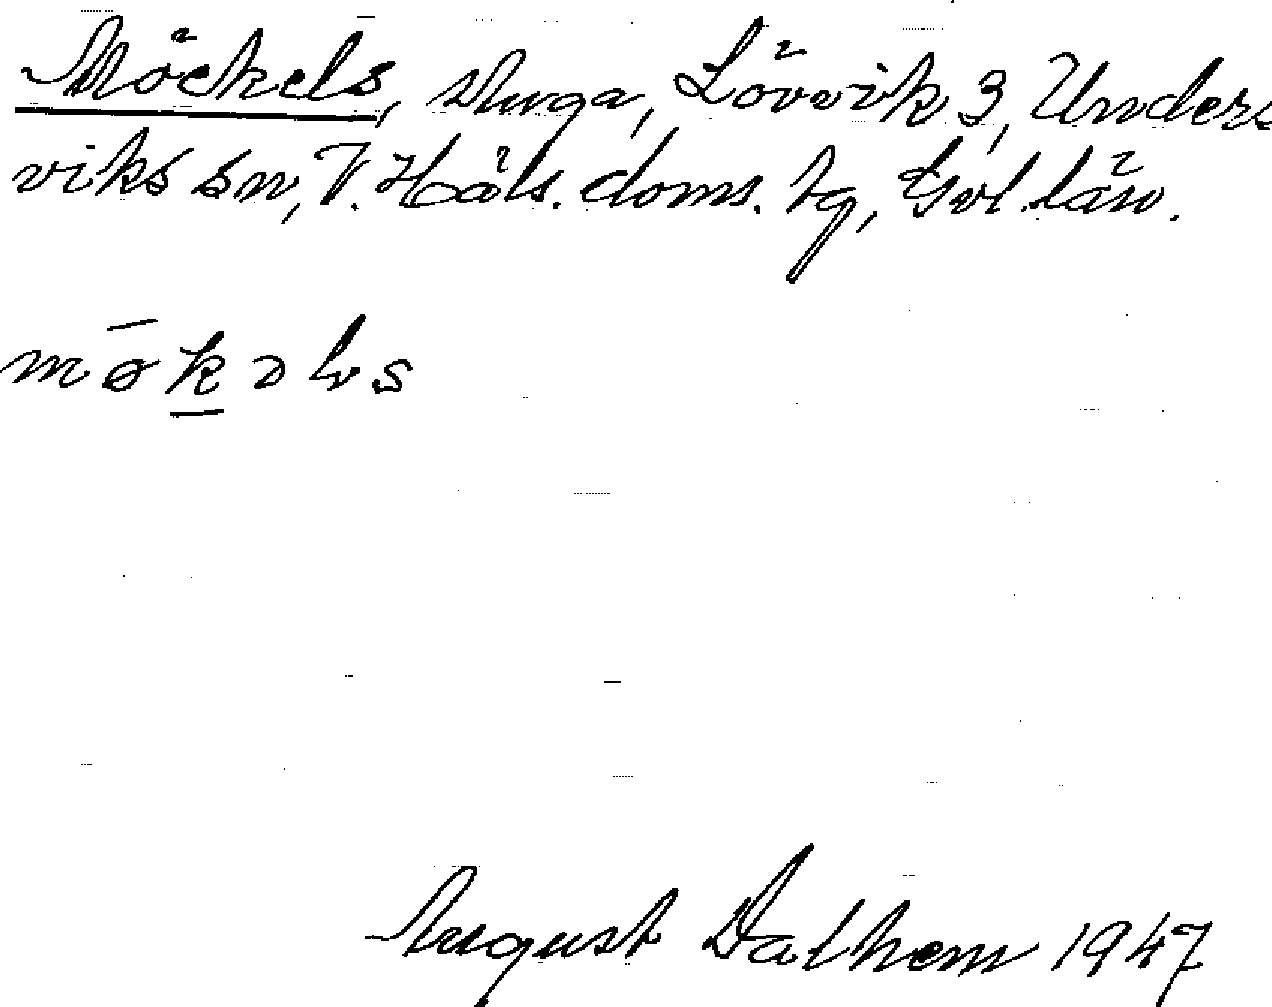 Möckels, stuga, Lövvik 3, Unders
viks sn, V. Häls. doms. tg, Gvl. län.
mø̄k̲əls
August Dalhem 1947